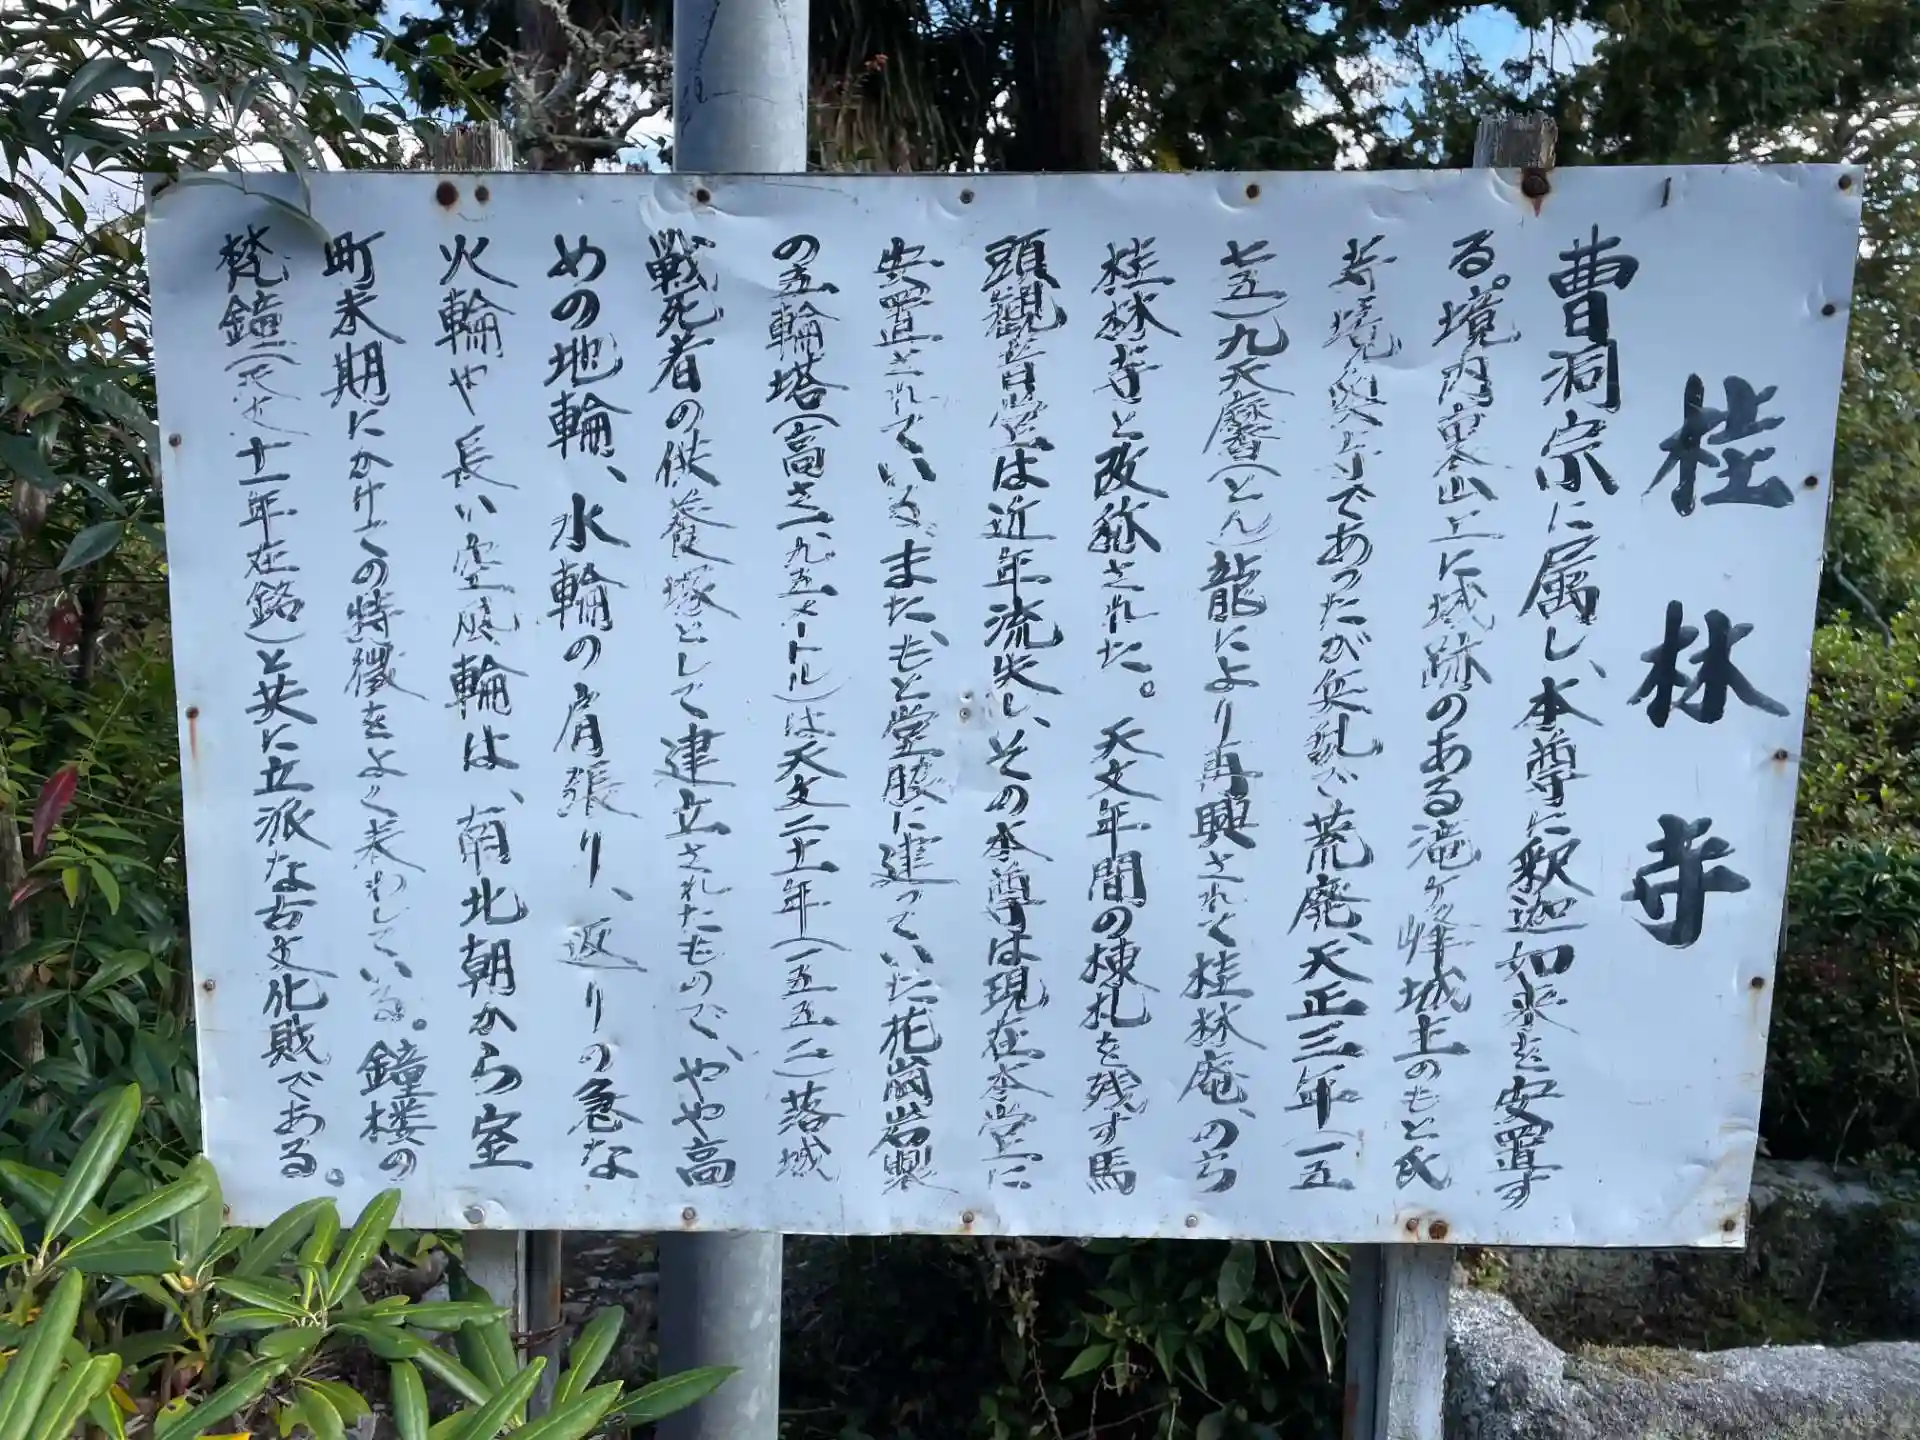 桂林寺
曹洞宗に属し、本尊に釈迦如来を安置す
る。境内裏山上に城跡のある滝ケ峰城主のもと氏
寺境奥寺であったが兵乱で荒廃、天正三年(一五
七五)九天麿(とん)龍により再興されて桂林庵、のち
桂林寺と改称された。天文年間の棟札を残す馬
頭観音堂は近年流失し、その本尊は現在本堂に
安置されている。また、もと堂脇に建っていた花崗岩製
の五輪塔(高さ一、九五メートル)は天文二十一年(一五五二)落城
戦死者の供養塚として建立されたもので、やや高
めの地輪、水輪の肩張り、返りの急な
火輪や長い空風輪は、南北朝から室
町末期にかけての特徴をよく表わしている。鐘楼の
梵鐘(天文十一年在銘)と共に立派な古文化財である。